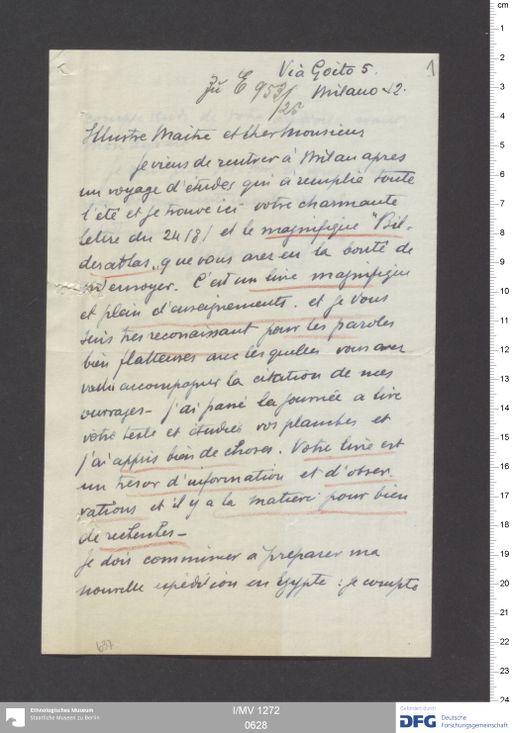 Via Goito 5.
1
Zu E 953/25
Milano 12.
Illustre Maitre et cher Monsieur
Je viens de rentrer à Milan apres
un voyage d'études qui à remplie toute
l'été et je trouve ici votre charmante
lettre du 24/8/ et le magnifique "Bil-
deratlas" que vous avez eu la bonté de
m'envoyer. C'est un livre magnifique
et plein d'enseignements. et je vous
suis tres reconaissant pour les paroles
bien flatteuses avec lesquelles vous avez
voulu accompagner la citation de mes
ouvrages - j'ai passé la journée a lire
votre texte et étudier vos planches et
j'ai appris bien de choses. Votre livre est
un tresor d'information et d'obser-
vations et il y a la matiere pour bien
de recherches -
Je dois comminuer a preparer ma
nouvelle expédition en Egypte : je compte
637
Ethnologisches Museum
Staatliche Museen zu Berlin
I/MV 1272
0628
Gefördert durch
DFG Deutsche
Forschungsgemeinschaft
cm
1
2
3
4
5
6
7
8
9
10
11
12
13
14
15
16
17
18
19
20
21
22
23
24